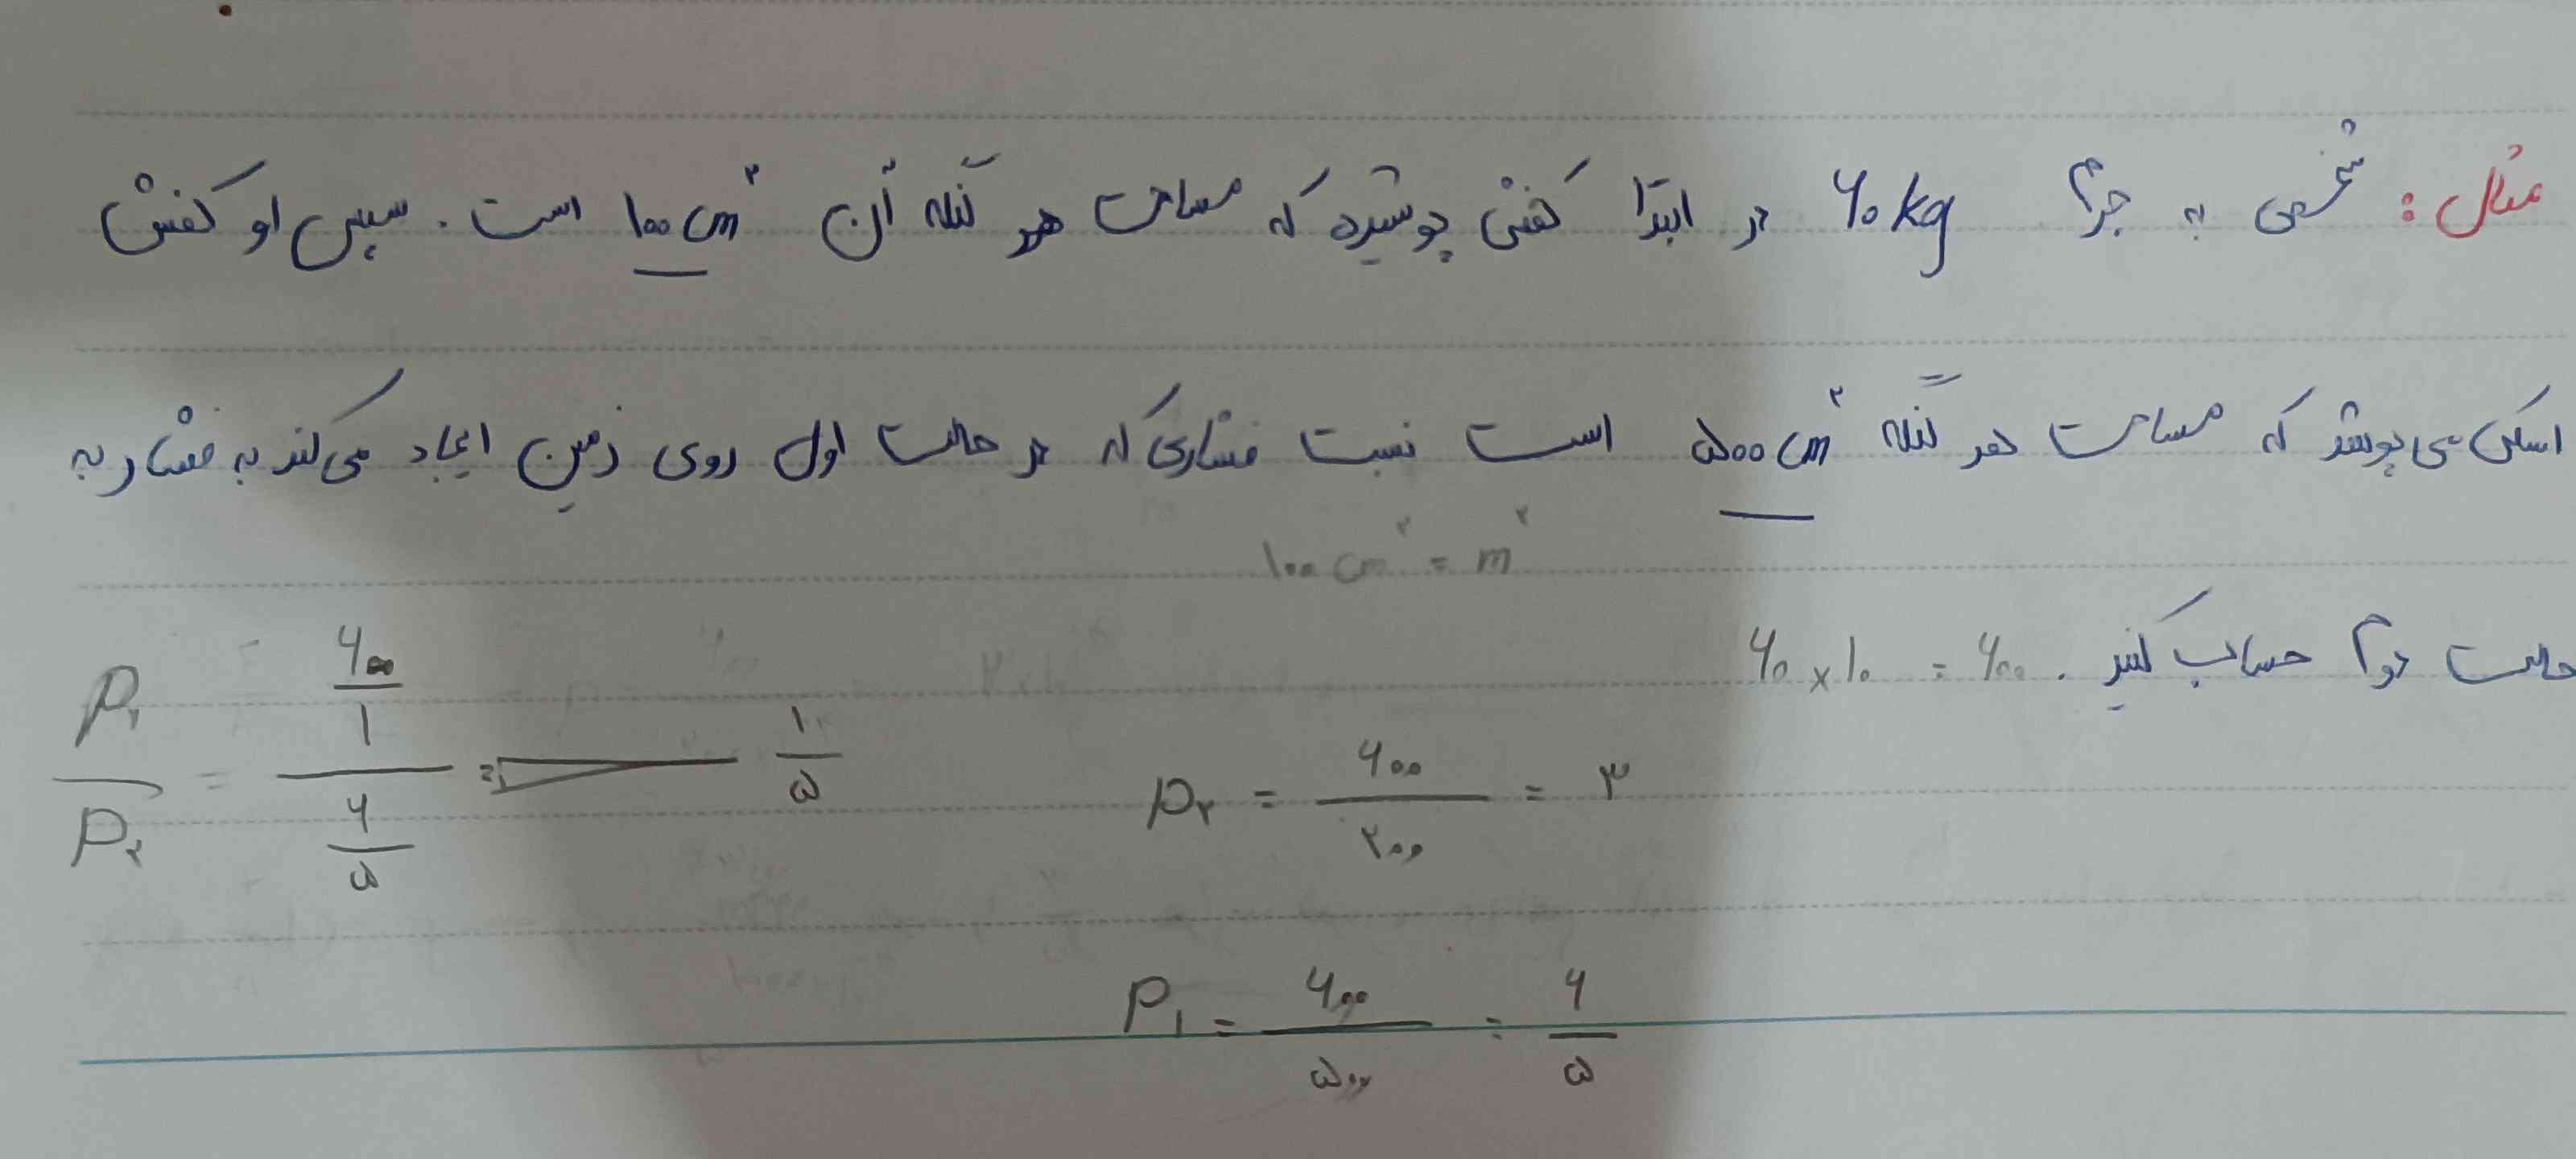 مثال: شخصی به جرم ۶۰ kg در ابتدا کفش پوشیده که مساحت هر تکه آن ۱۰۰ cm² است. سپس او کفش
اسکی می پوشد که مساحت هر تکه ۵۰۰ cm² است نسبت فشاری که در حالت اول روی زمین ایجاد می کند به فشار به
۱۰۰ cm² = m²
حالت دوم حساب کنید. ۶۰ × ۱۰ = ۶۰۰
P₁/P₂ = (۶۰۰/۱)/(۶/۵) = ۱/۵
P₂ = ۶۰۰/۲۰۰ = ۳
P₁ = ۶۰۰/۵۰۰ = ۶/۵